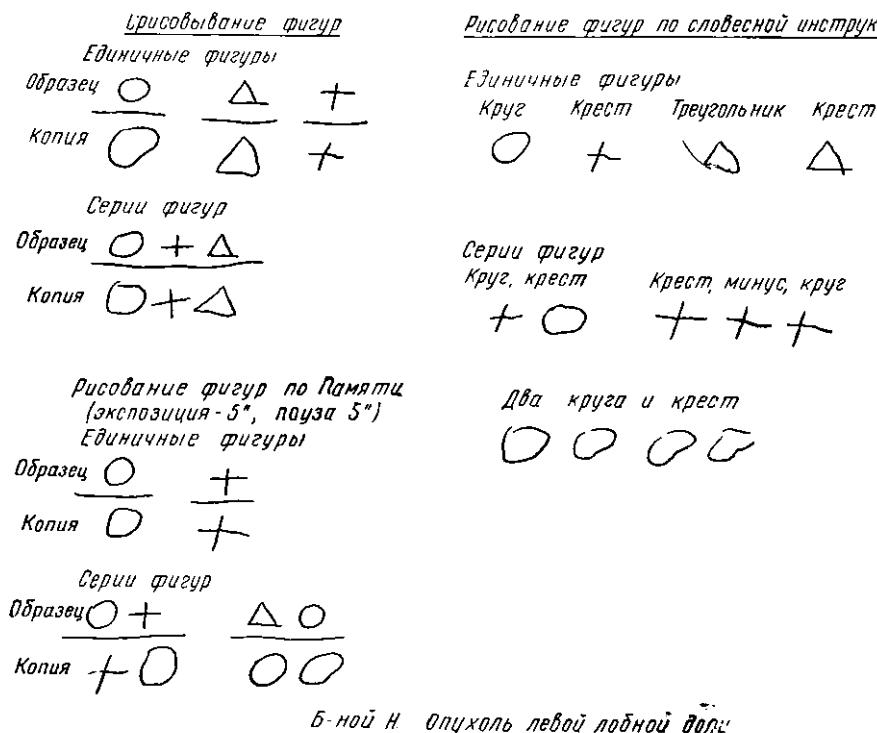 Срисовывание фигур
Единичные фигуры
Образец
Копия
Серии фигур
Образец
Копия
Рисование фигур по Памяти
(экспозиция - 5", пауза 5")
Единичные фигуры
Образец
Копия
Серии фигур
Образец
Копия
Рисование фигур по словесной инструк
Единичные фигуры
Круг Крест Треугольник Крест
Серии фигур
Круг, крест Крест, минус, круг
Два круга и крест
Б-ной Н. Опухоль левой лобной доли